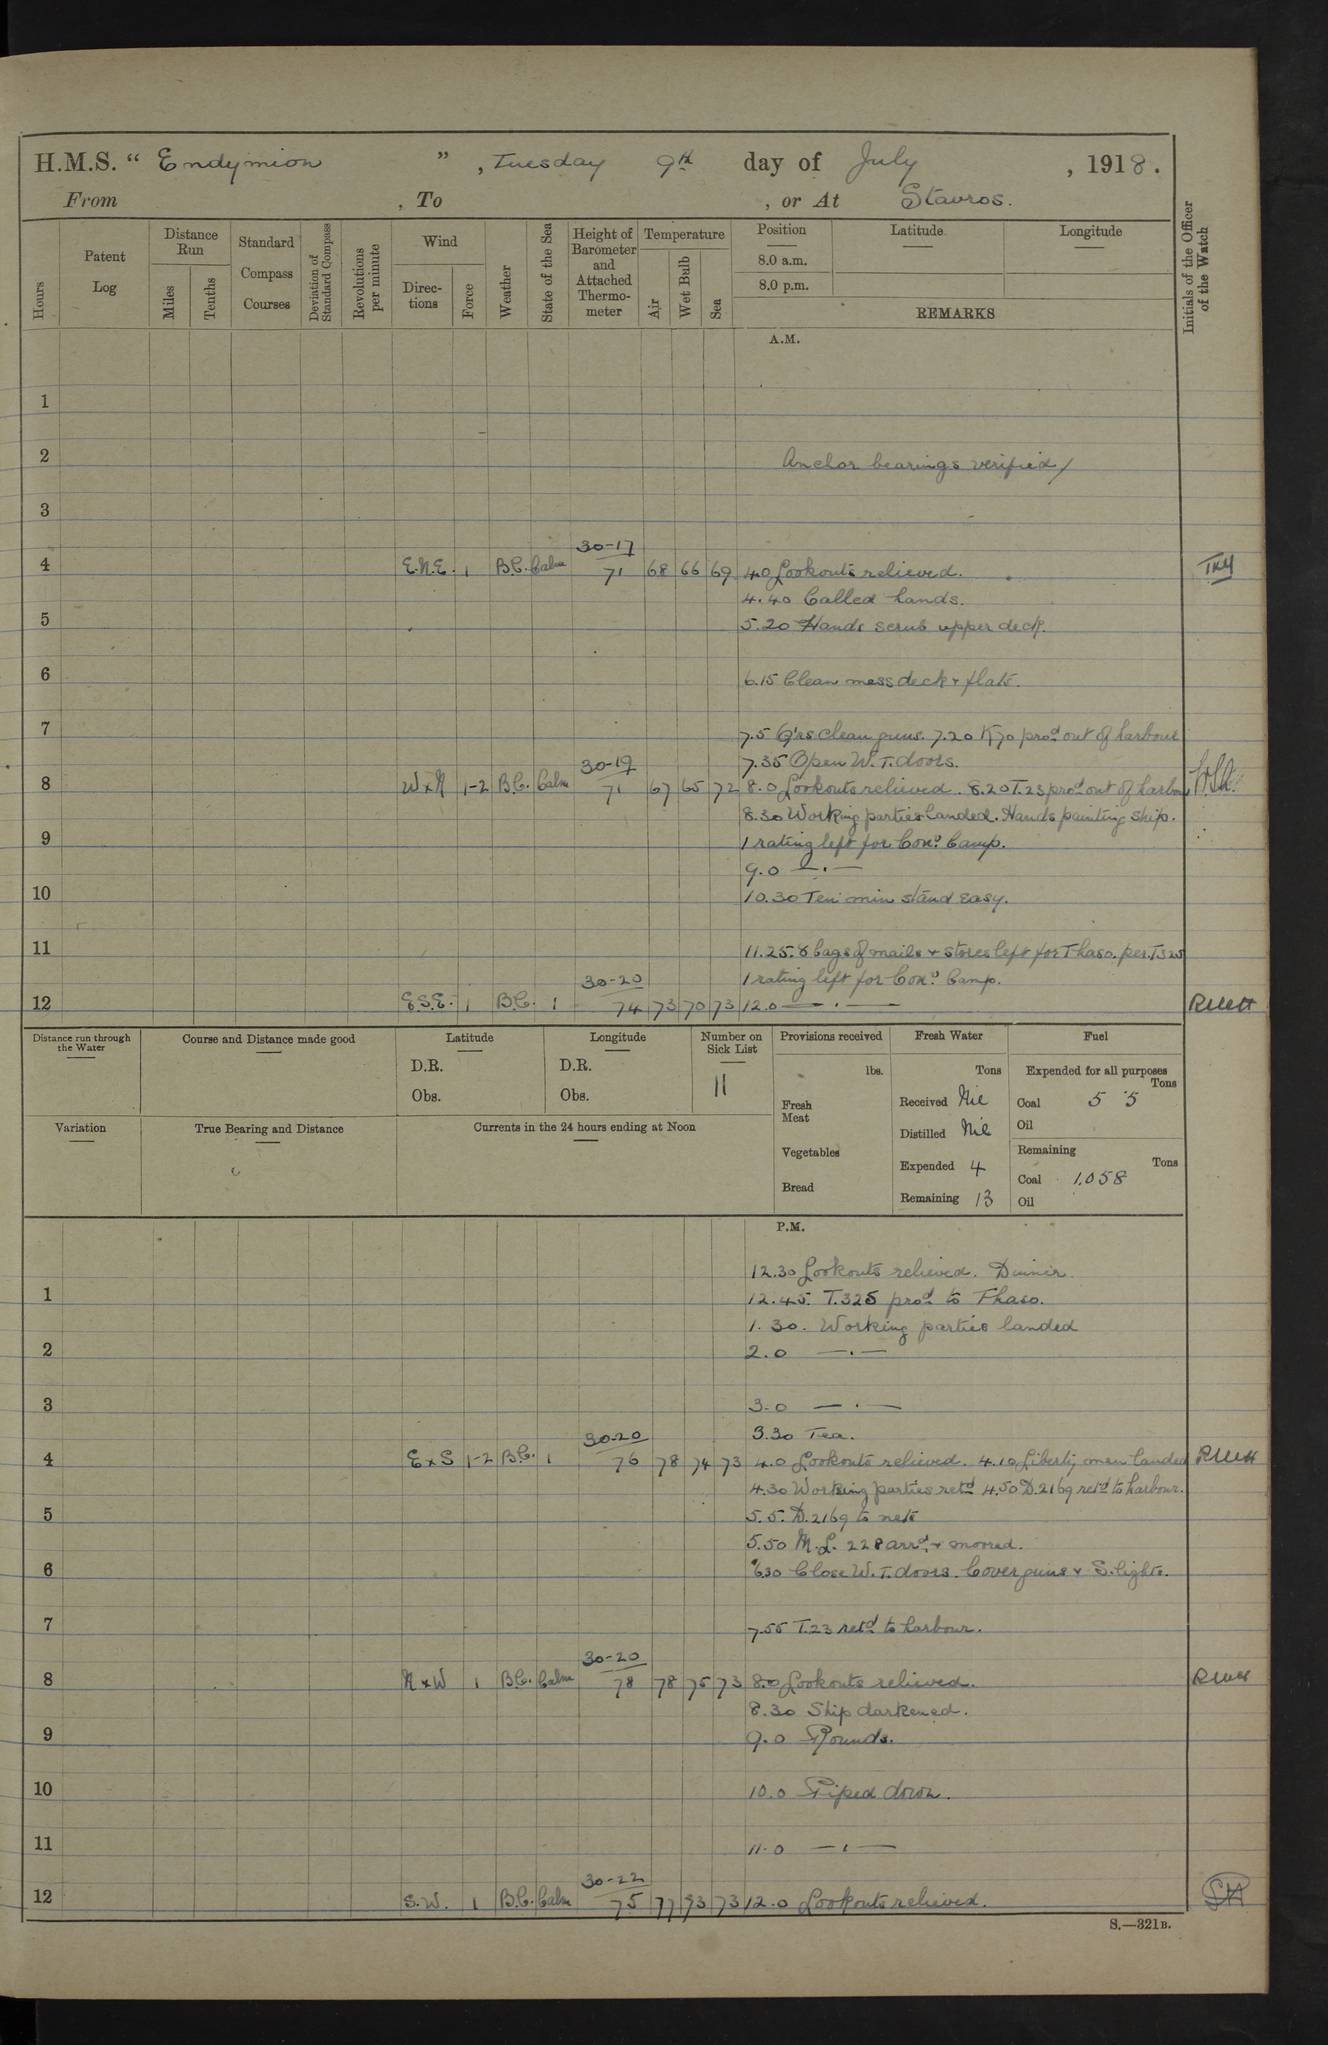 H.M.S. “ Endymion ” , Tuesday 9th day of July , 1918.
From , To , or At Stavros.
Hours Patent Log Distance Run Miles Tenths Standard Compass Courses Deviation of Standard Compass Revolutions per minute Wind Directions Force Weather State of the Sea Height of Barometer and Attached Thermometer Temperature Air Wet Bulb Sea Position 8.0 a.m. 8.0 p.m. Latitude Longitude REMARKS Initials of the Officer of the Watch
A.M.
1
2 Anchor bearings verified/
3
30-17
4 E.N.E. 1 B.C. Calm 71 68 66 69 4.0 Lookouts relieved.
4.40 Called hands.
5 5.20 Hands scrub upper deck.
6 6.15 Clean mess deck & flats.
7 7.5 Q'rs clean guns. 7.20 K70 procd out of harbour
30-19 7.35 Open W.T. doors.
8 W x N 1-2 B.C. Calm 71 67 65 72 8.0 Lookouts relieved. 8.20 T.23 procd out of harbour
8.30 Working parties landed. Hands painting ship.
9 1 rating left for Con. Camp.
9.0 — · —
10 10.30 Ten min stand easy.
11 11.25. 8 bags of mails & stores left for Thaso. per. T325
30-20 1 rating left for Con. Camp.
12 E.S.E. 1 B.C. 1 74 73 70 73 12.0 — · — RWH
Distance run through the Water Course and Distance made good Latitude Longitude Number on Sick List Provisions received Fresh Water Fuel
D.R. D.R. 11 lbs. Tons Expended for all purposes Tons
Obs. Obs. Fresh Meat Received Nil Coal 5 5
Variation True Bearing and Distance Currents in the 24 hours ending at Noon Distilled Nil Oil
Vegetables Expended 4 Remaining Tons
Coal 1.058
Bread Remaining 13 Oil
P.M.
12.30 Lookouts relieved. Dinner.
1 12.45. T.325 procd to Thaso.
1.30. Working parties landed
2 2.0 — · —
3 3.0 — · —
30-20 3.30 Tea.
4 E x S 1-2 B.C. 1 76 78 74 73 4.0 Lookouts relieved. 4.10 Liberty men landed RWH
4.30 Working parties retd 4.50 D.2169 retd to harbour.
5 5.5. D.2169 to nets
5.50 M.L. 228 arrd & moored.
6 6.30 Close W.T. doors. Cover guns & S. lights.
7 7.55 T.23 retd to harbour.
30-20
8 N x W 1 B.C. Calm 78 78 75 73 8.0 Lookouts relieved. RWH
8.30 Ship darkened.
9 9.0 Rounds.
10 10.0 Piped down.
11 11.0 — · —
30-22
12 S.W. 1 B.C. Calm 75 77 73 73 12.0 Lookouts relieved.
S.—321B.